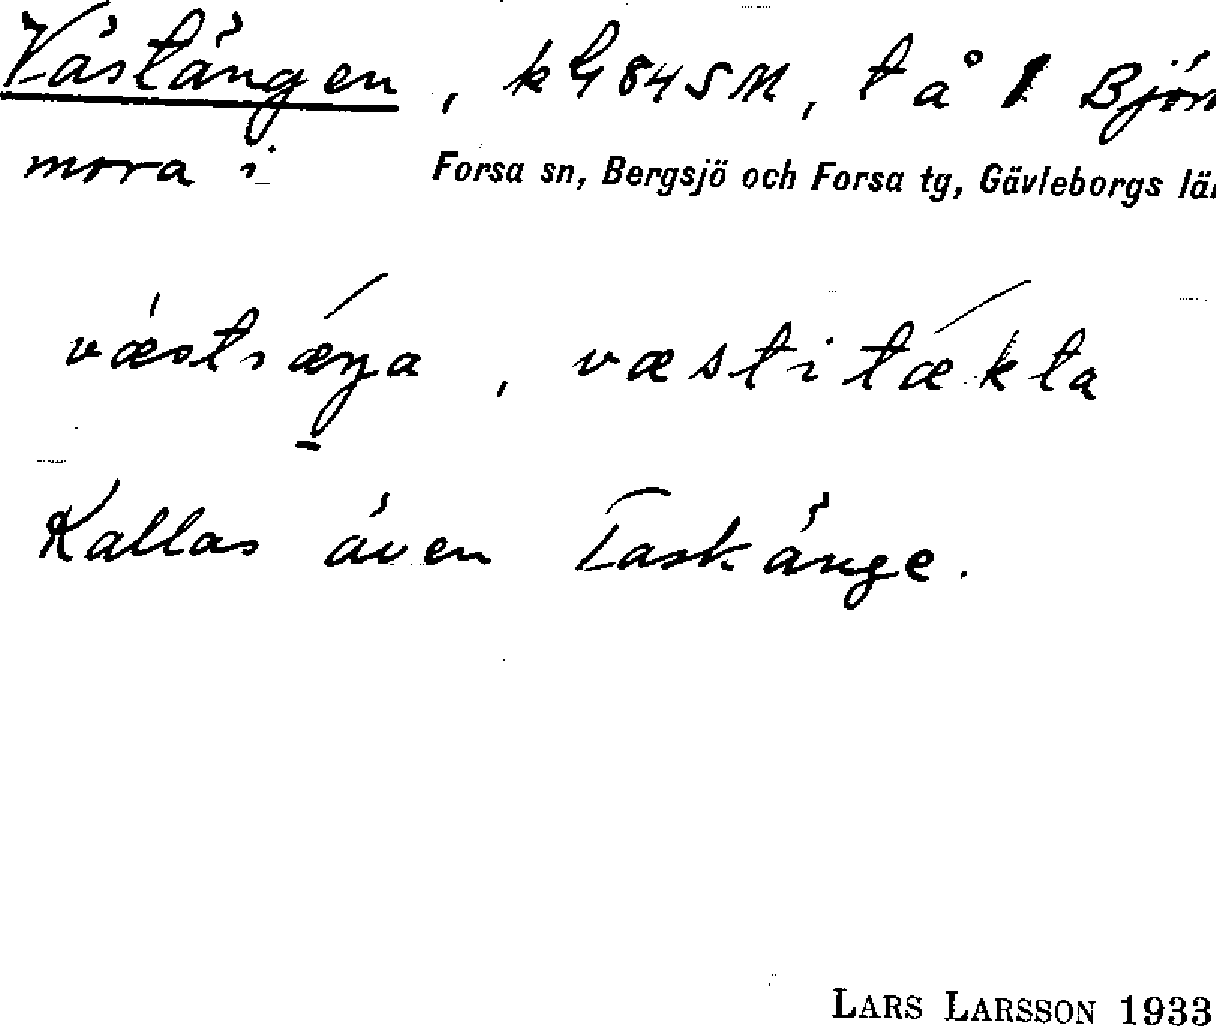 Västängen, kG 84 SM, tå 1 Björn
mora i Forsa sn, Bergsjö och Forsa tg, Gävleborgs län
væstræŋa, væstitækta
Kallas även Taskänge.
LARS LARSSON 1933